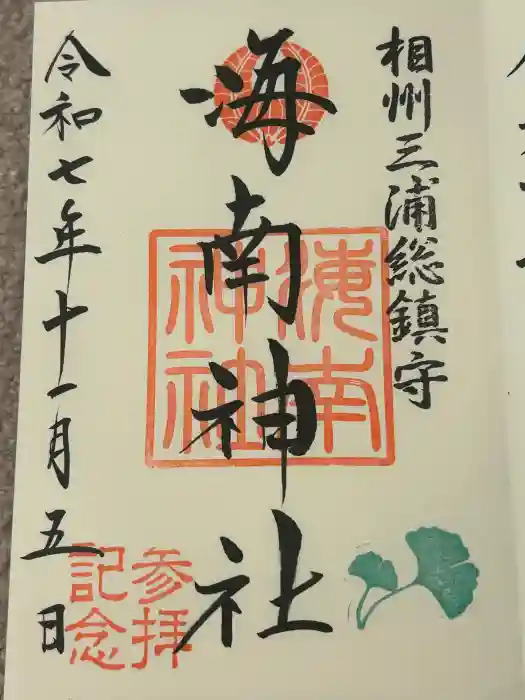 相州三浦総鎮守
海南神社
海南神社
参拝記念
令和七年十一月五日